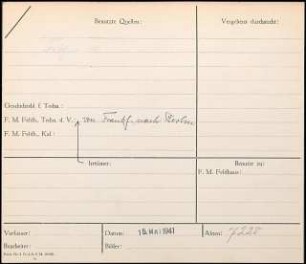 Benutzte Quellen:
Vergebens durchsucht:
Geschichtsbl. f. Techn.:
F. M. Feldh., Techn. d. V.:
von Frankf. nach
F. M. Feldh., Kal.:
Irrtümer:
Benutzt zu:
F. M. Feldhaus:
Verfasser:
Datum:
MAI 1941
Akten:
7228
Bearbeiter:
Bilder: